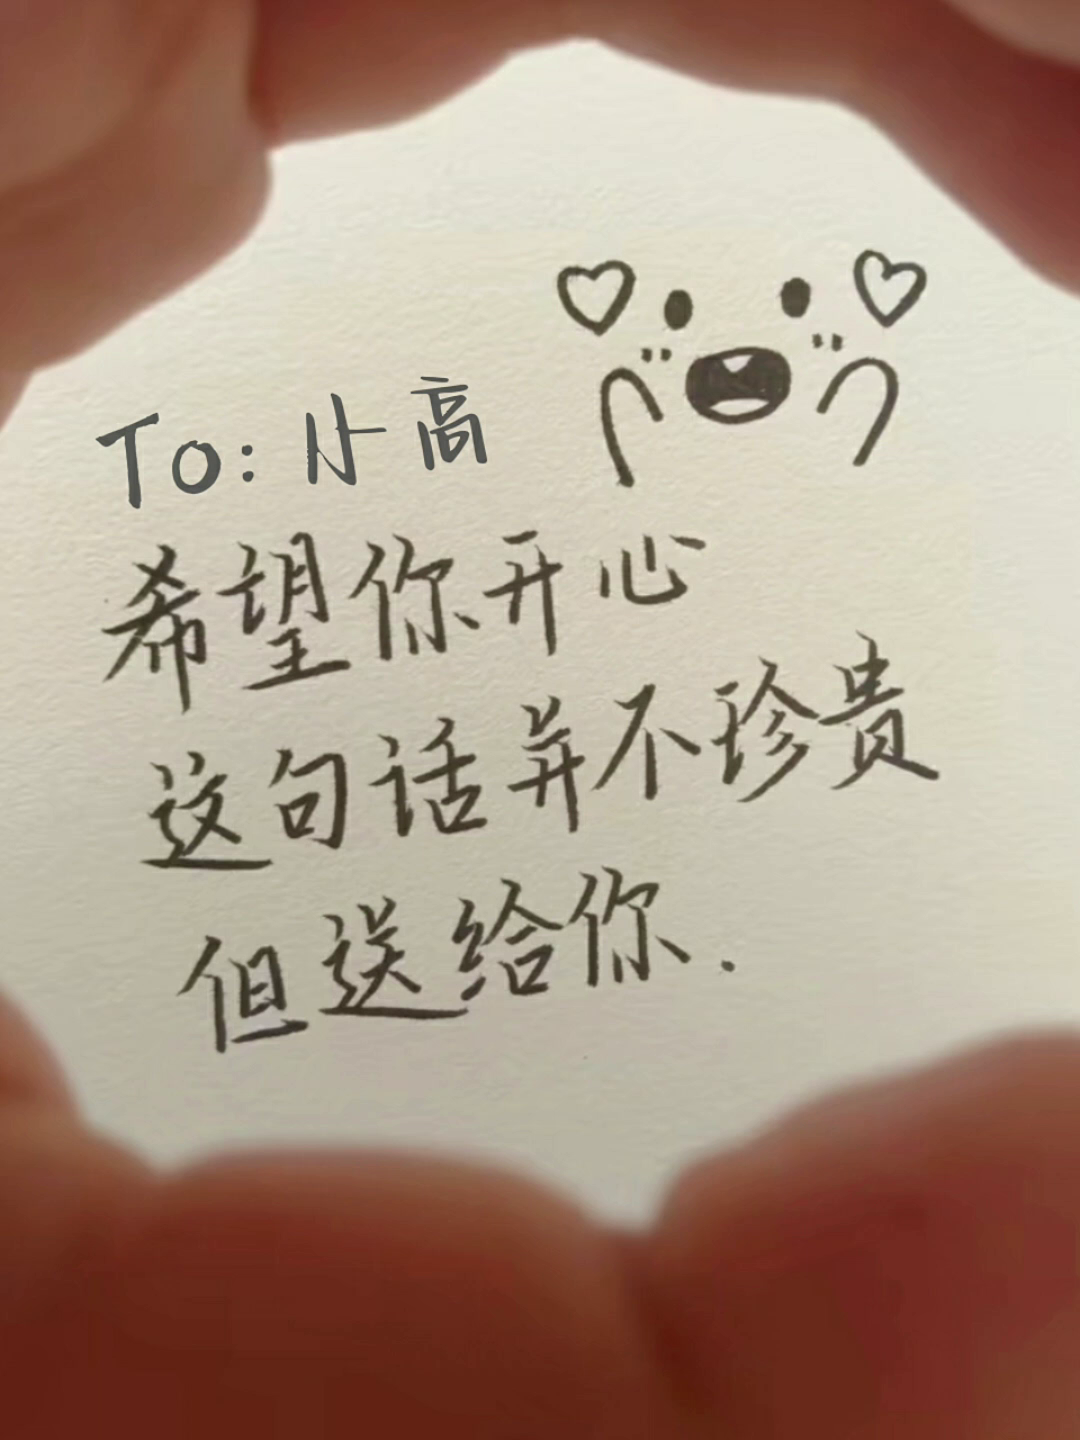 To: 小高
希望你开心
这句话并不珍贵
但送给你.